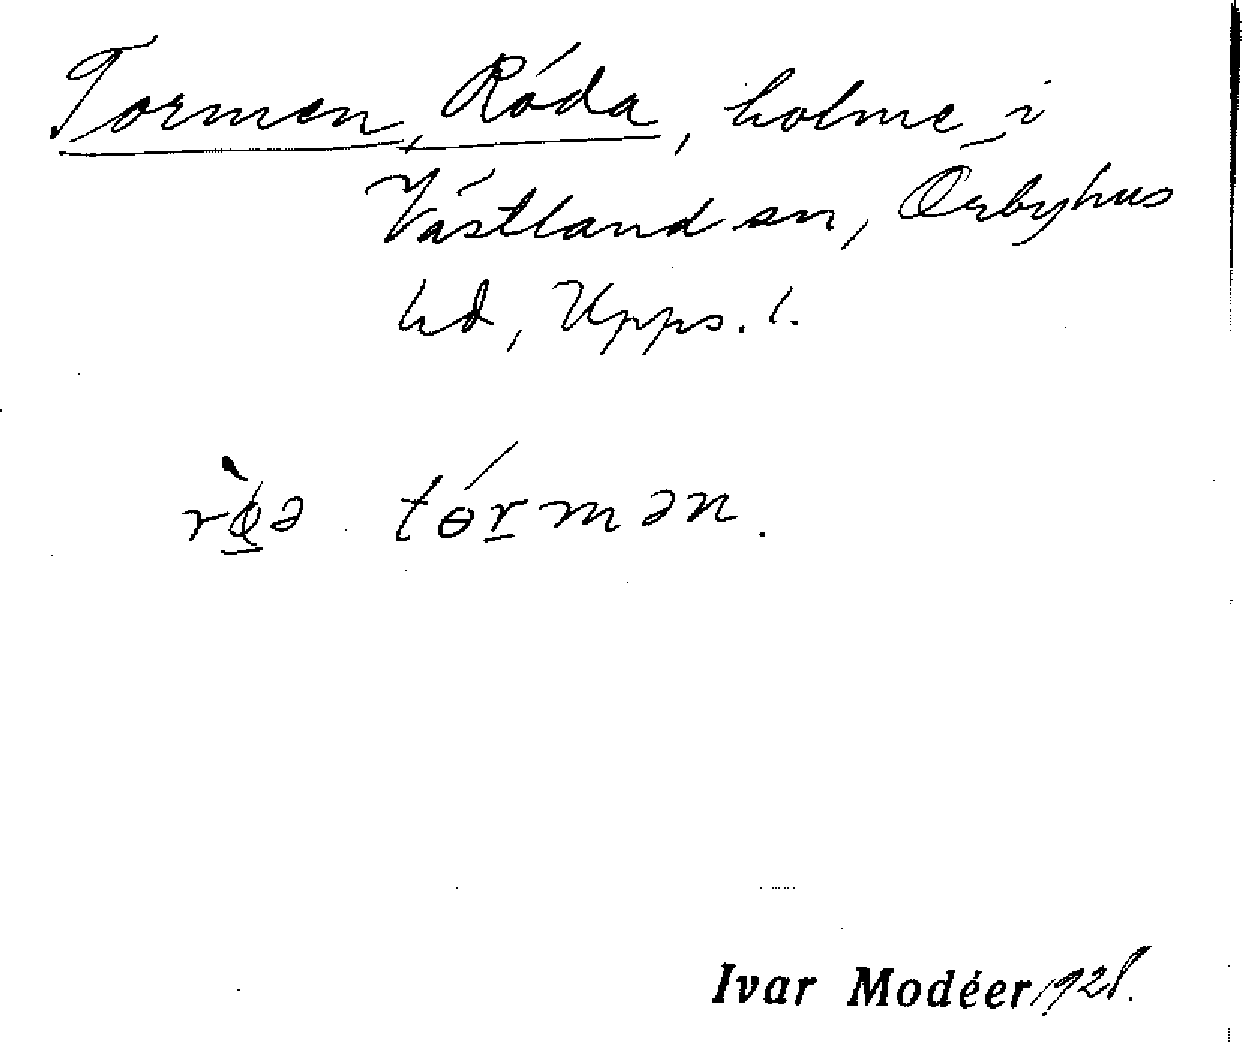 Tormen, Röda, holme i
Västland sn, Örbyhus
hd, Upps. l.
tórmən.
Ivar Modéer 1928.